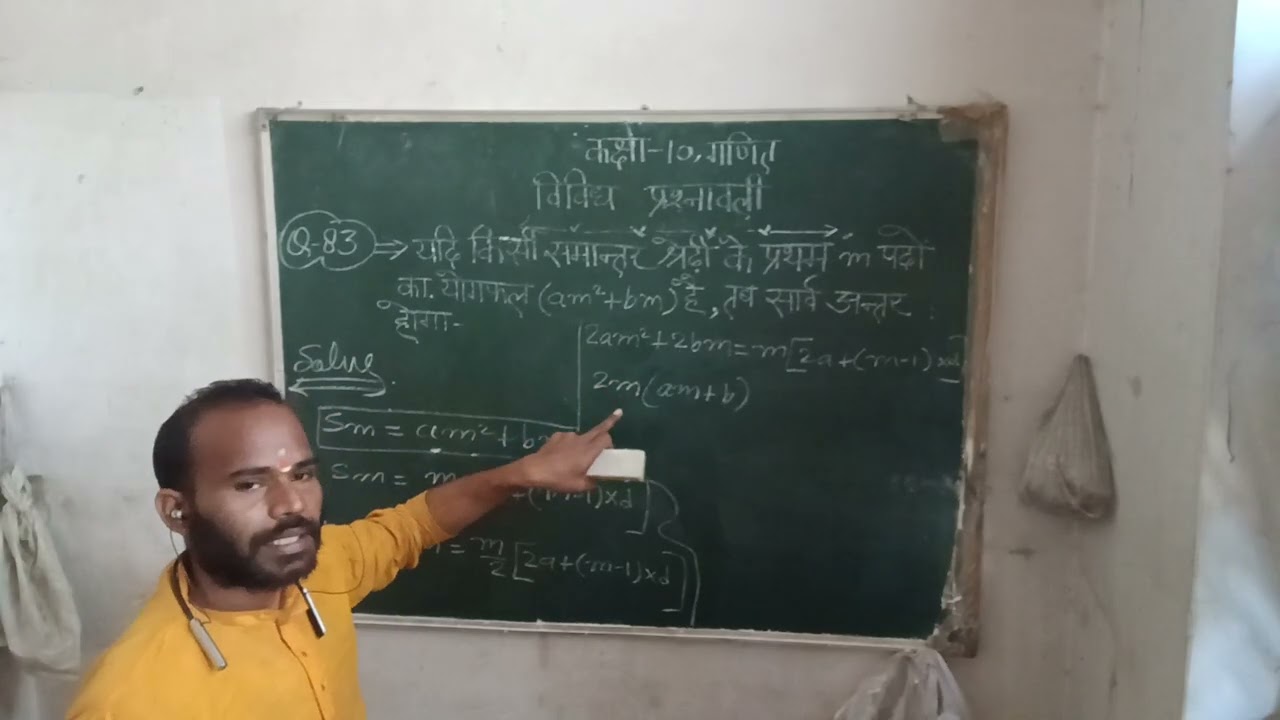 कक्षा-10, गणित
विविध प्रश्नावली
Q-83 ⇒ यदि किसी समान्तर श्रेढ़ी के प्रथम m पदों
का योगफल (am²+bm) है, तब सार्व अन्तर
होगा-
Solve
Sm = am²+b
Sm = +(m-1)×d]
= m/2 [2a+(m-1)×d]
2am²+2bm=m[2a+(m-1)×d]
2m(am+b)